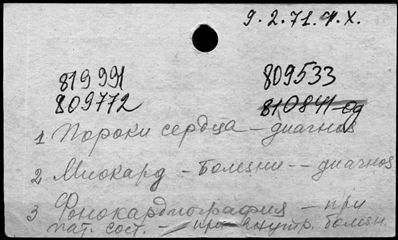 9.2.71.Ч.X.
819991 809533
809772 810841-од
1 Пороки сердца - диагноз
2 Миокард - Болезни -- диагноз
3 Фонокардиография - при
пат. сост. - при внутр. болезн